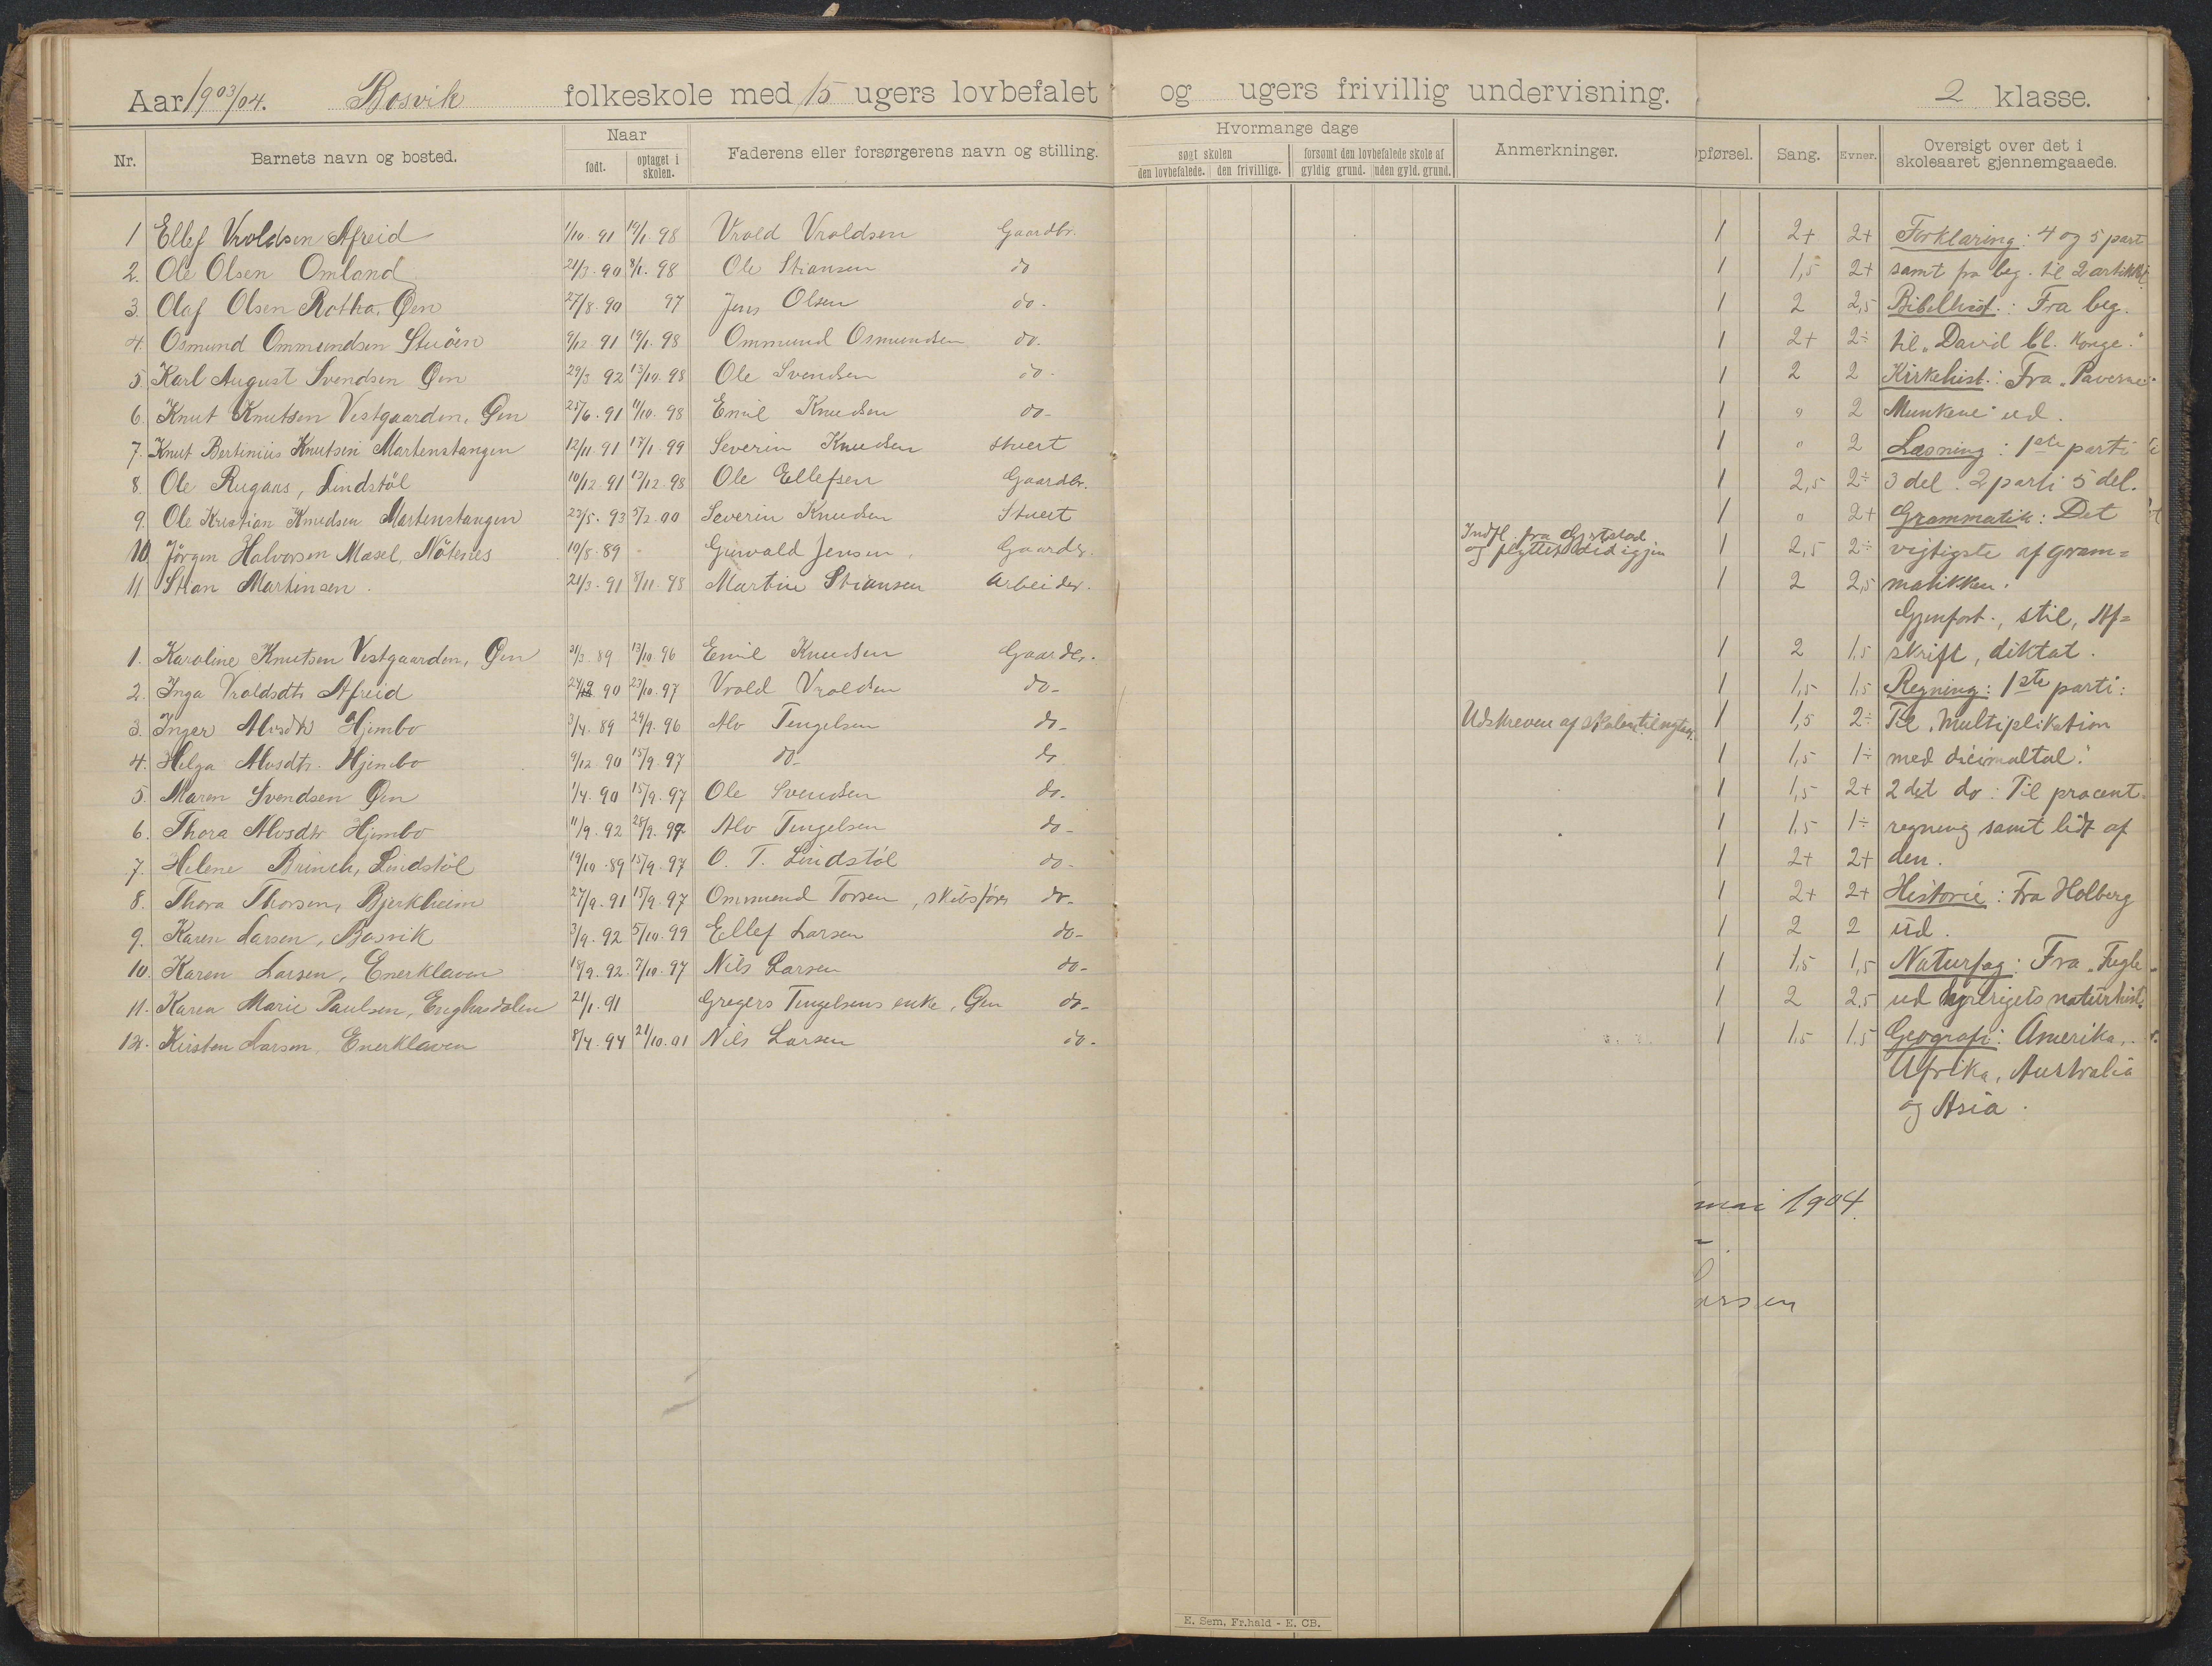 Aar 1903/04. Bosvik folkeskole med 15 ugers lovbefalet og ugers frivillig undervisning. 2 klasse.
Nr. Barnets navn og bosted. Naar født. optaget i skolen. Faderens eller forsørgerens navn og stilling. Hvormange dage søgt skolen den lovbefalede. den frivillige. forsømt den lovbefalede skole af gyldig grund. uden gyld. grund. Anmerkninger. pførsel. Sang. Evner. Oversigt over det i skoleaaret gjennemgaaede.
1 Ellef Vroldsen Afreid 1/10 91 19/1 98 Vrold Vroldsen Gaardbr. 1 2+ 2+ Forklaring: 4 og 5 part
2. Ole Olsen Omland 21/3 90 8/1 98 Ole Stiansen do 1 1,5 2+ samt fra beg. til 2 artikkel
3. Olaf Olsen Rotka, Øen 27/8 90 97 Jens Olsen do. 1 2 2,5 Bibelhist.: Fra beg.
4. Osmund Ommundsen Stuöen 9/12 91 19/1 98 Ommund Osmundsen do. 1 2+ 2÷ til "David bl. Konge."
5 Karl August Svendsen Øen 29/3 92 13/10 98 Ole Svendsen do. 1 2 2 Kirkehist.: Fra "Paverne
6. Knut Knutsen Vestgaarden, Øen 25/6 91 11/10 98 Emil Knudsen do- 1 " 2 Munkene" ud.
7. Knut Bertinius Knutsen Martenstangen 12/11 91 17/1 99 Severin Knudsen Stuert 1 " 2 Læsning: 1ste parti
8. Ole Rugaas, Lindstöl 10/12 91 13/12 98 Ole Ellefsen Gaardbr. 1 2,5 2÷ 3 del. 2 parti 5 del.
9. Ole Kristian Knudsen Martenstangen 23/5 93 5/2 00 Severin Knudsen Stuert 1 " 2+ Grammatik: Det
10 Jörgen Halvorsen Masel, Nötenes 10/8 89 Gunvald Jensen Gaardb. Indfl. fra Gjerstad og flyttet did igjen 1 2,5 2÷ vigtigste af gram=
11 Stian Martinsen. 21/3 91 8/11 98 Martin Stiansen Arbeider. 1 2 2,5 matikken.
Gjenfort., stil, Af=
1. Karoline Knutsen Vestgaarden, Øen 21/3 89 13/10 96 Emil Knudsen Gaardbr. 1 2 1,5 skrift, diktat.
2. Inga Vroldsdtr Afreid 24/12 90 23/10 97 Vrold Vroldsen do- 1 1,5 1,5 Regning: 1ste parti:
3. Inger Alvsdtr Hjembo 3/4 89 29/9 96 Alv Tengelsen do- Udskreven af skolen 1 1,5 2÷ Til "Multiplikation
4. Helga Alvsdtr. Hjembo 9/12 90 15/9 97 do- do 1 1,5 1÷ med dicimaltal."
5. Maren Svendsen Øen 1/4 90 15/9 97 Ole Svendsen do. 1 1,5 2+ 2det do: Til procent
6. Thora Alvsdtr Hjembo 11/9 92 28/9 99 Alv Tengelsen do- 1 1,5 1÷ regning samt lidt af
7. Helene Brinch, Lindstöl 19/10 89 15/9 97 O. T. Lindstöl do- 1 2+ 2+ den.
8. Thora Thorsen, Bjerkheim 27/9 91 15/9 97 Ommund Torsen, skibsfører do- 1 2+ 2+ Historie: Fra Holberg
9. Karen Larsen, Bosvik 3/9 92 5/10 99 Ellef Larsen do- 1 2 2 ud.
10. Karen Larsen, Enerklaven 18/9 92 7/10 97 Nils Larsen do- 1 1,5 1,5 Naturfag: Fra "Fugle
11. Karen Marie Paulsen, Enghusdalen 21/1 91 Gregers Tengelsens enke, Øen do- 1 2 2,5 ud dyrerigets naturhist.
12. Kirsten Larsen, Enerklaven 8/4 94 21/10 01 Nils Larsen do- 1 1,5 1,5 Geografi: Amerika,
Afrika, Australia
og Asia.
mai 1904.
arsen
E. Sem, Fr.hald - E. CB.